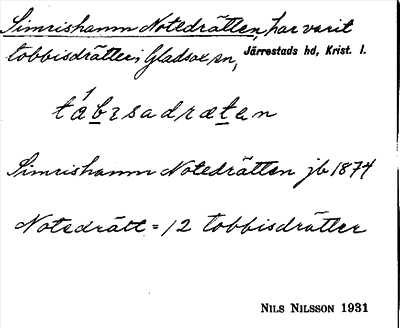 Simrishamn Notedrätten, har varit
tobbisdrätter i Gladsax sn, Järrestads hd, Krist. l.
tábɪsadræten
Simrishamn Notedrätten jb 1874
Notedrätt = 12 tobbisdrätter
NILS NILSSON 1931